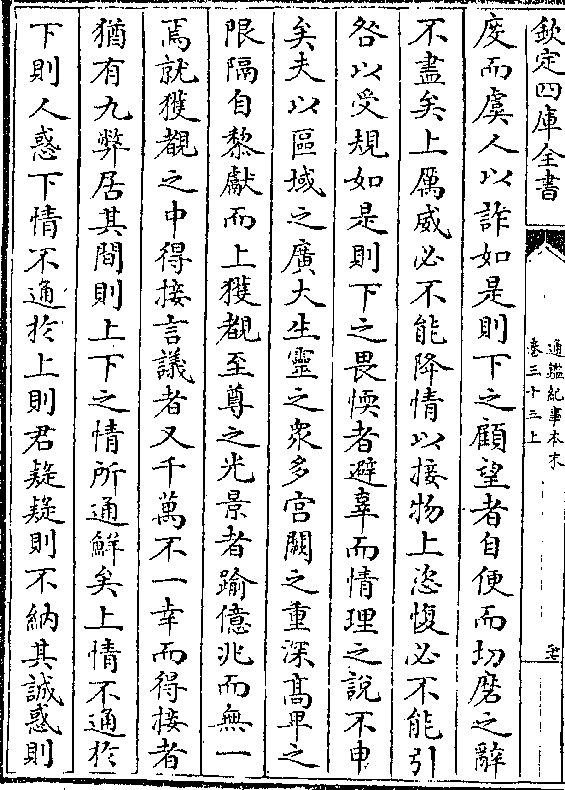 欽定四庫全書
通鑑紀事本末
卷三十三上
度而虞人以詐如是則下之顧望者自便而切磨之辭
不盡矣上厲威必不能降情以接物上恣愎必不能引
咎以受規如是則下之畏愞者避辜而情理之說不申
矣夫以區域之廣大生靈之衆多宮闕之重深髙卑之
限隔自黎獻而上獲覩至尊之光景者踰億兆而無一
焉就獲覩之中得接言議者又千萬不一幸而得接者
猶有九弊居其間則上下之情所通鮮矣上情不通於
下則人惑下情不通於上則君疑疑則不納其誠惑則